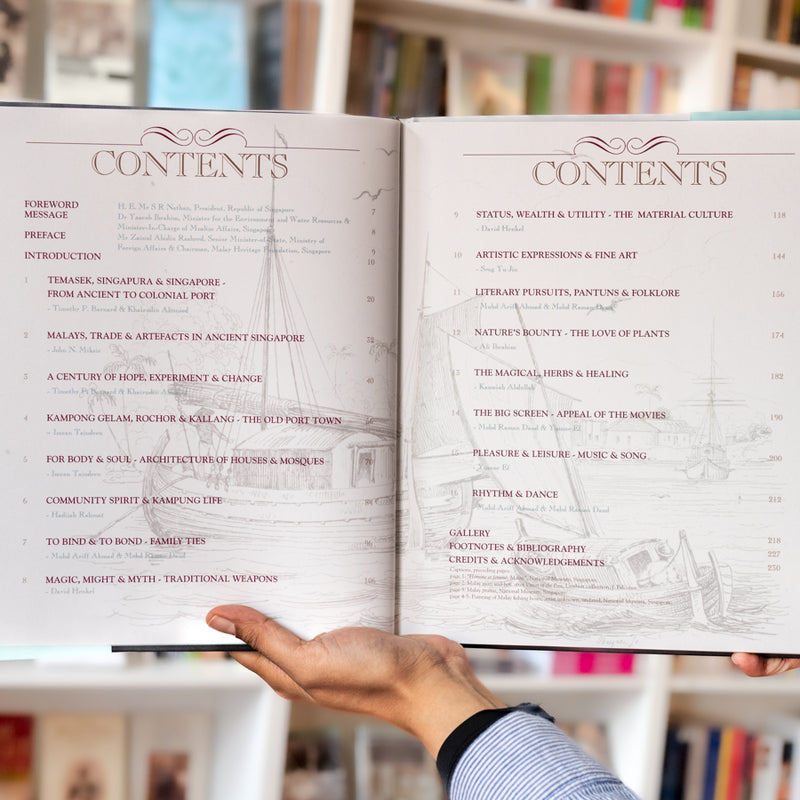 CONTENTS
FOREWORD
MESSAGE
H. E. Mr S R Nathan, President, Republic of Singapore
7
Dr Yaacob Ibrahim, Minister for the Environment and Water Resources &
Minister-In-Charge of Muslim Affairs, Singapore
8
PREFACE
Mr Zainul Abidin Rasheed, Senior Minister of State, Ministry of
Foreign Affairs & Chairman, Malay Heritage Foundation, Singapore
9
INTRODUCTION
10
1 TEMASEK, SINGAPURA & SINGAPORE -
FROM ANCIENT TO COLONIAL PORT 20
- Timothy P. Barnard & Khairudin Aljunied
2 MALAYS, TRADE & ARTEFACTS IN ANCIENT SINGAPORE 32
- John N. Miksic
3 A CENTURY OF HOPE, EXPERIMENT & CHANGE 40
- Timothy P. Barnard & Khairudin Aljunied
4 KAMPONG GELAM, ROCHOR & KALLANG - THE OLD PORT TOWN
- Imran Tajudeen
5 FOR BODY & SOUL - ARCHITECTURE OF HOUSES & MOSQUES 70
- Imran Tajudeen
6 COMMUNITY SPIRIT & KAMPUNG LIFE 84
- Hadijah Rahmat
7 TO BIND & TO BOND - FAMILY TIES 96
- Mohd Ariff Ahmad & Mohd Raman Daud
8 MAGIC, MIGHT & MYTH - TRADITIONAL WEAPONS 106
- David Henkel
CONTENTS
9 STATUS, WEALTH & UTILITY - THE MATERIAL CULTURE 118
- David Henkel
10 ARTISTIC EXPRESSIONS & FINE ART 144
- Seng Yu Jin
11 LITERARY PURSUITS, PANTUNS & FOLKLORE 156
- Mohd Ariff Ahmad & Mohd Raman Daud
12 NATURE'S BOUNTY - THE LOVE OF PLANTS 174
- Ali Ibrahim
13 THE MAGICAL, HERBS & HEALING 182
- Kamsiah Abdullah
14 THE BIG SCREEN - APPEAL OF THE MOVIES 190
- Mohd Raman Daud & Yusnor Ef
15 PLEASURE & LEISURE - MUSIC & SONG 200
- Yusnor Ef
16 RHYTHM & DANCE 212
- Mohd Ariff Ahmad & Mohd Raman Daud
GALLERY 218
FOOTNOTES & BIBLIOGRAPHY 227
CREDITS & ACKNOWLEDGEMENTS 230
Captions, preceding pages: